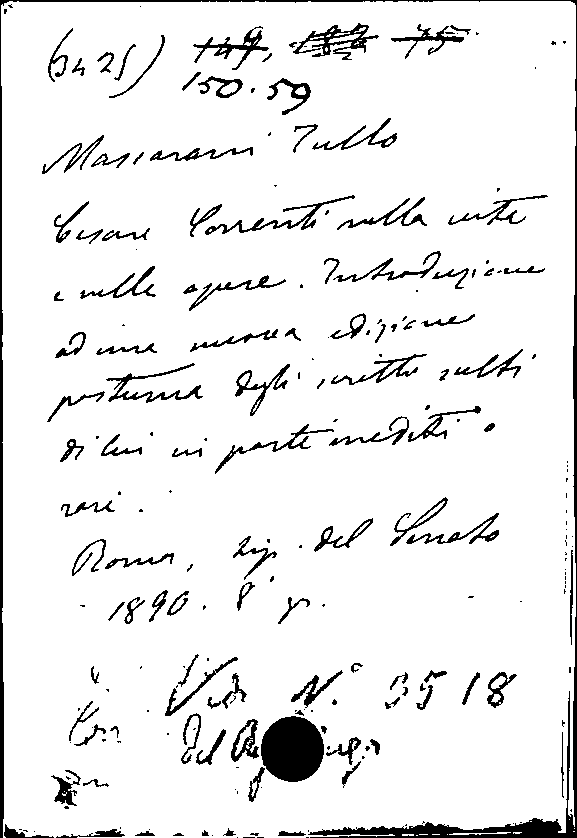 (3425) 149, 182 75
150.59
Massarani Tullo
Cesare Correnti nella vita
e nelle opere. Introduzione
ad una nuova edizione
postuma degli scritti scelti
di lui in parte inediti o
rari.
Roma, tip. del Senato
1890. 8° gr.
Vedi N.° 3518
Del